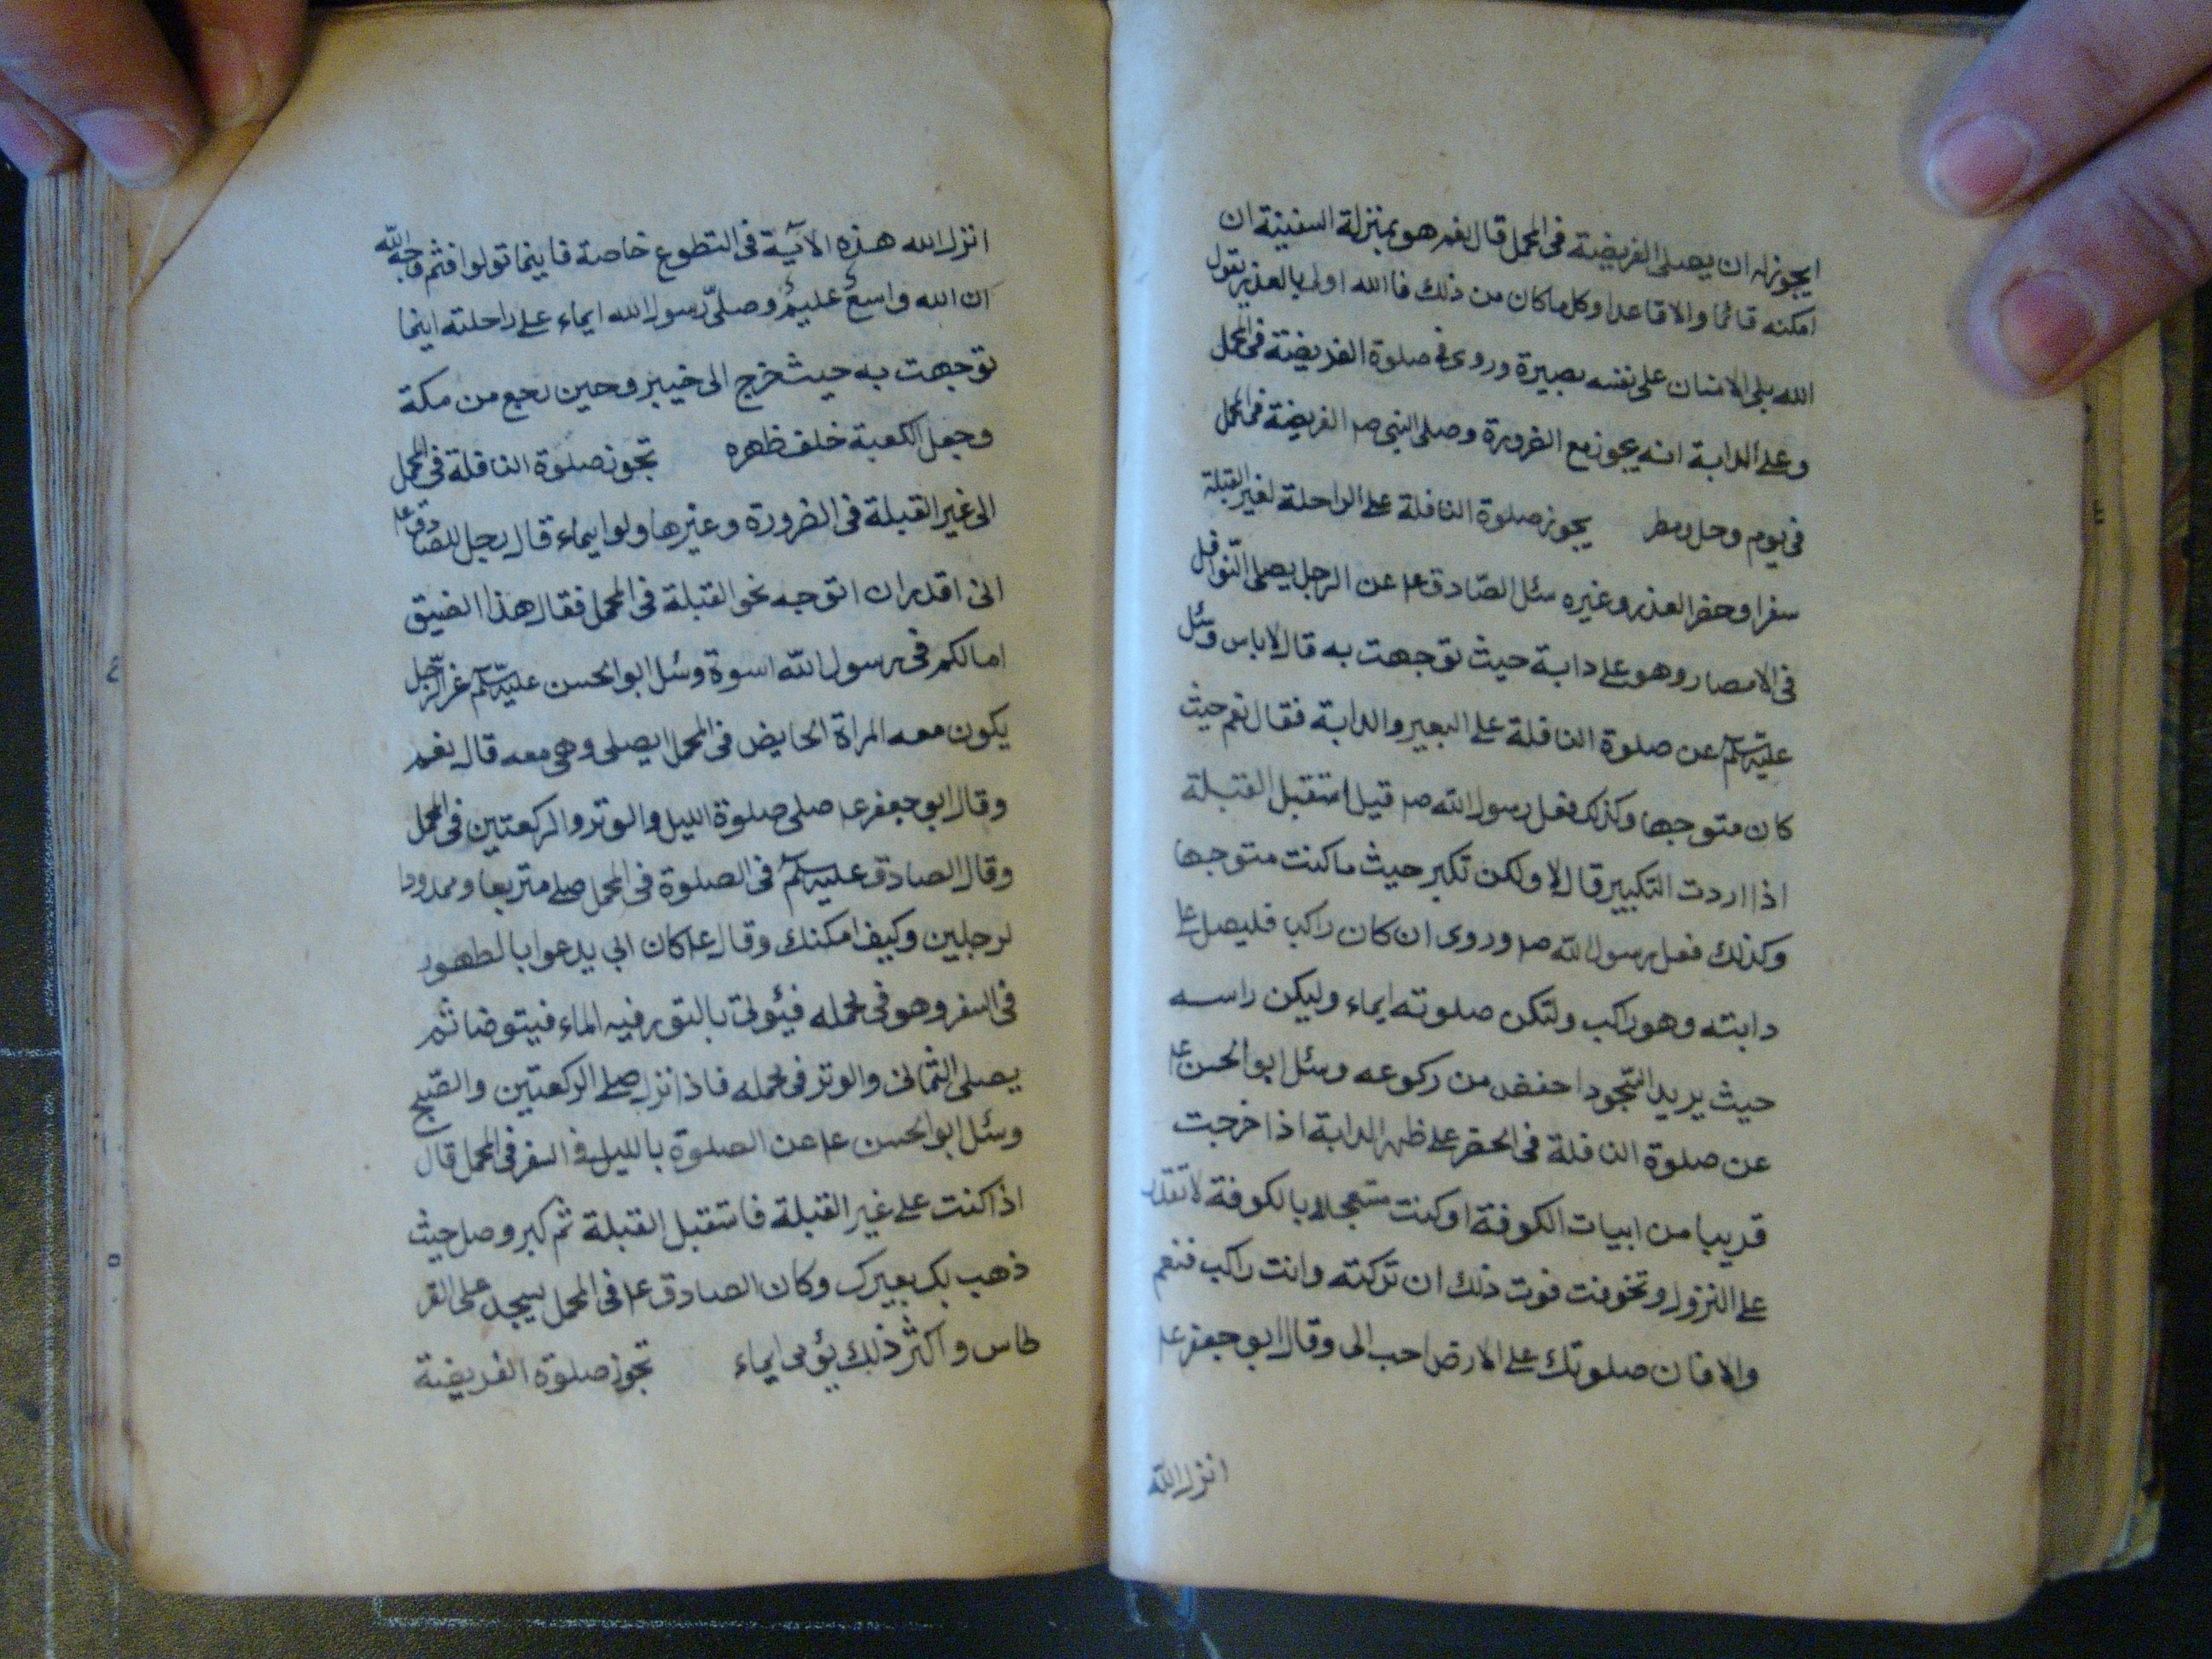 ايجوز له ان يصلى الفريضة فى المحمل قال نعم هو بمنزلة السفينة ان
امكنه قائما والا قاعدا وكل ما كان من ذلك فالله اولى بالعذر يقول
الله بلى الانسان على نفسه بصيرة وروى فى صلوة الفريضة فى المحمل
وعلى الدابة انه يجوز مع الضرورة وصلى النبى صم الفريضة فى المحمل
فى يوم وحل ومطر يجوز صلوة النافلة على الراحلة لغير القبلة
سفرا وحضرا لعذر وغيره سئل الصّادق عم عن الرجل يصلى النّوافل
فى الامصار وهو على دابة حيث توجهت به قال لا باس وسئل
عليه السلم عن صلوة النافلة على البعير والدابة فقال نعم حيث
كان متوجها وكذلك فعل رسول الله صم قيل استقبل القبلة
اذا اردت التكبير قال لا ولكن تكبر حيث ما كنت متوجها
وكذلك فعل رسول الله صم وروى ان كان راكب فليصل على
دابته وهو راكب ولتكن صلوته ايماء وليكن راسه
حيث يريد السّجود احفض من ركوعه وسئل ابو الحسن عم
عن صلوة النافلة فى الحضر على ظهر الدابة اذا خرجت
قريبا من ابيات الكوفة او كنت مستعجلا بالكوفة لا تقدر
على النزول وتخوفت فوت ذلك ان تركته وانت راكب فنعم
والا فان صلوتك على الارض احب الى وقال ابو جعفر عم
انزل الله
انزل الله هذه الآية فى التطوع خاصة فاينما تولوا فثم وجه الله
ان الله واسعٌ عليمٌ وصلّى رسول الله ايماء على راحلته اينما
توجهت به حيث خرج الى خيبر وحين رجع من مكة
وجعل الكعبة خلف ظهره تجوز صلوة النافلة فى المحمل
الى غير القبلة فى الضرورة وغيرها ولو ايماء قال رجل للصادق عم
انى اقدر ان اتوجه نحو القبلة فى المحمل فقال هذا الضيق
امالكم فى رسول الله اسوة وسئل ابو الحسن عليه السلم عن الرّجل
يكون معه المراة الحايض فى المحمل ايصلى وهى معه قال نعم
وقال ابو جعفر عم صلى صلوة الليل والوتر والركعتين فى المحمل
وقال الصادق عليه السلم فى الصلوة فى المحمل صلى متربعا وممدودا
لرجلين وكيف امكنك وقال عم كان ابى يدعوا بالطهور
فى السفر وهو فى محمله فيئوتى بالتور فيه الماء فيتوضا ثم
يصلى الثمانى والوتر فى محمله فاذا نزل صلى الركعتين والصّبح
وسئل ابو الحسن عم عن الصلوة بالليل فى السفر فى المحمل قال
اذا كنت على غير القبلة فاستقبل القبلة ثم كبر وصل حيث
ذهب بك بعيرك وكان الصادق عم فى المحمل يسجد على القر
طاس واكثر ذلك يؤمى ايماء تجوز صلوة الفريضة